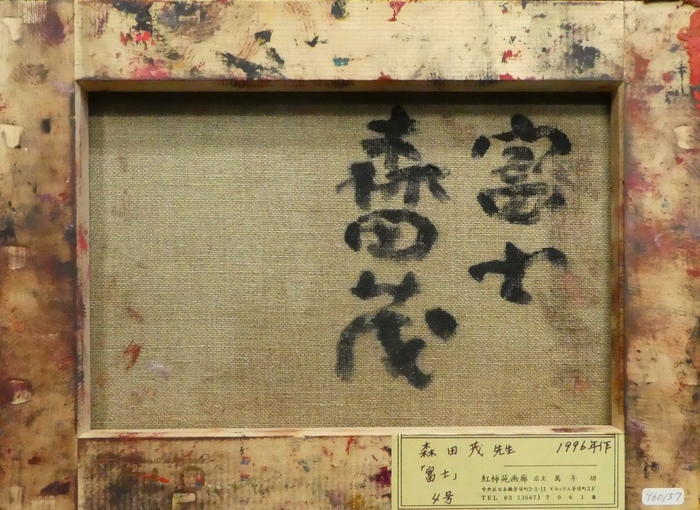 富士
森田茂
森田茂先生 1996年作
「富士」
4号
紅柿苑画廊 店主 萬年功
TEL 03 (3667) 7061
960157